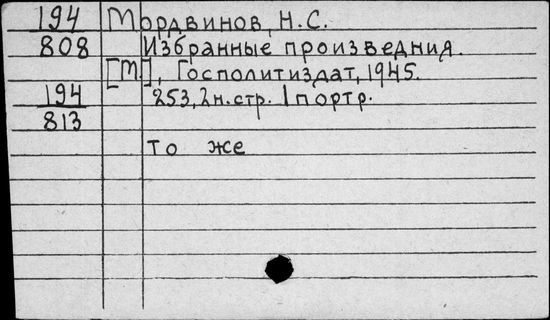 194 Мордвинов, Н.С.
808 Избранные произведния.
[М.], Госполитиздат, 1945.
194 253, 2 н. стр. 1 портр.
813
То же